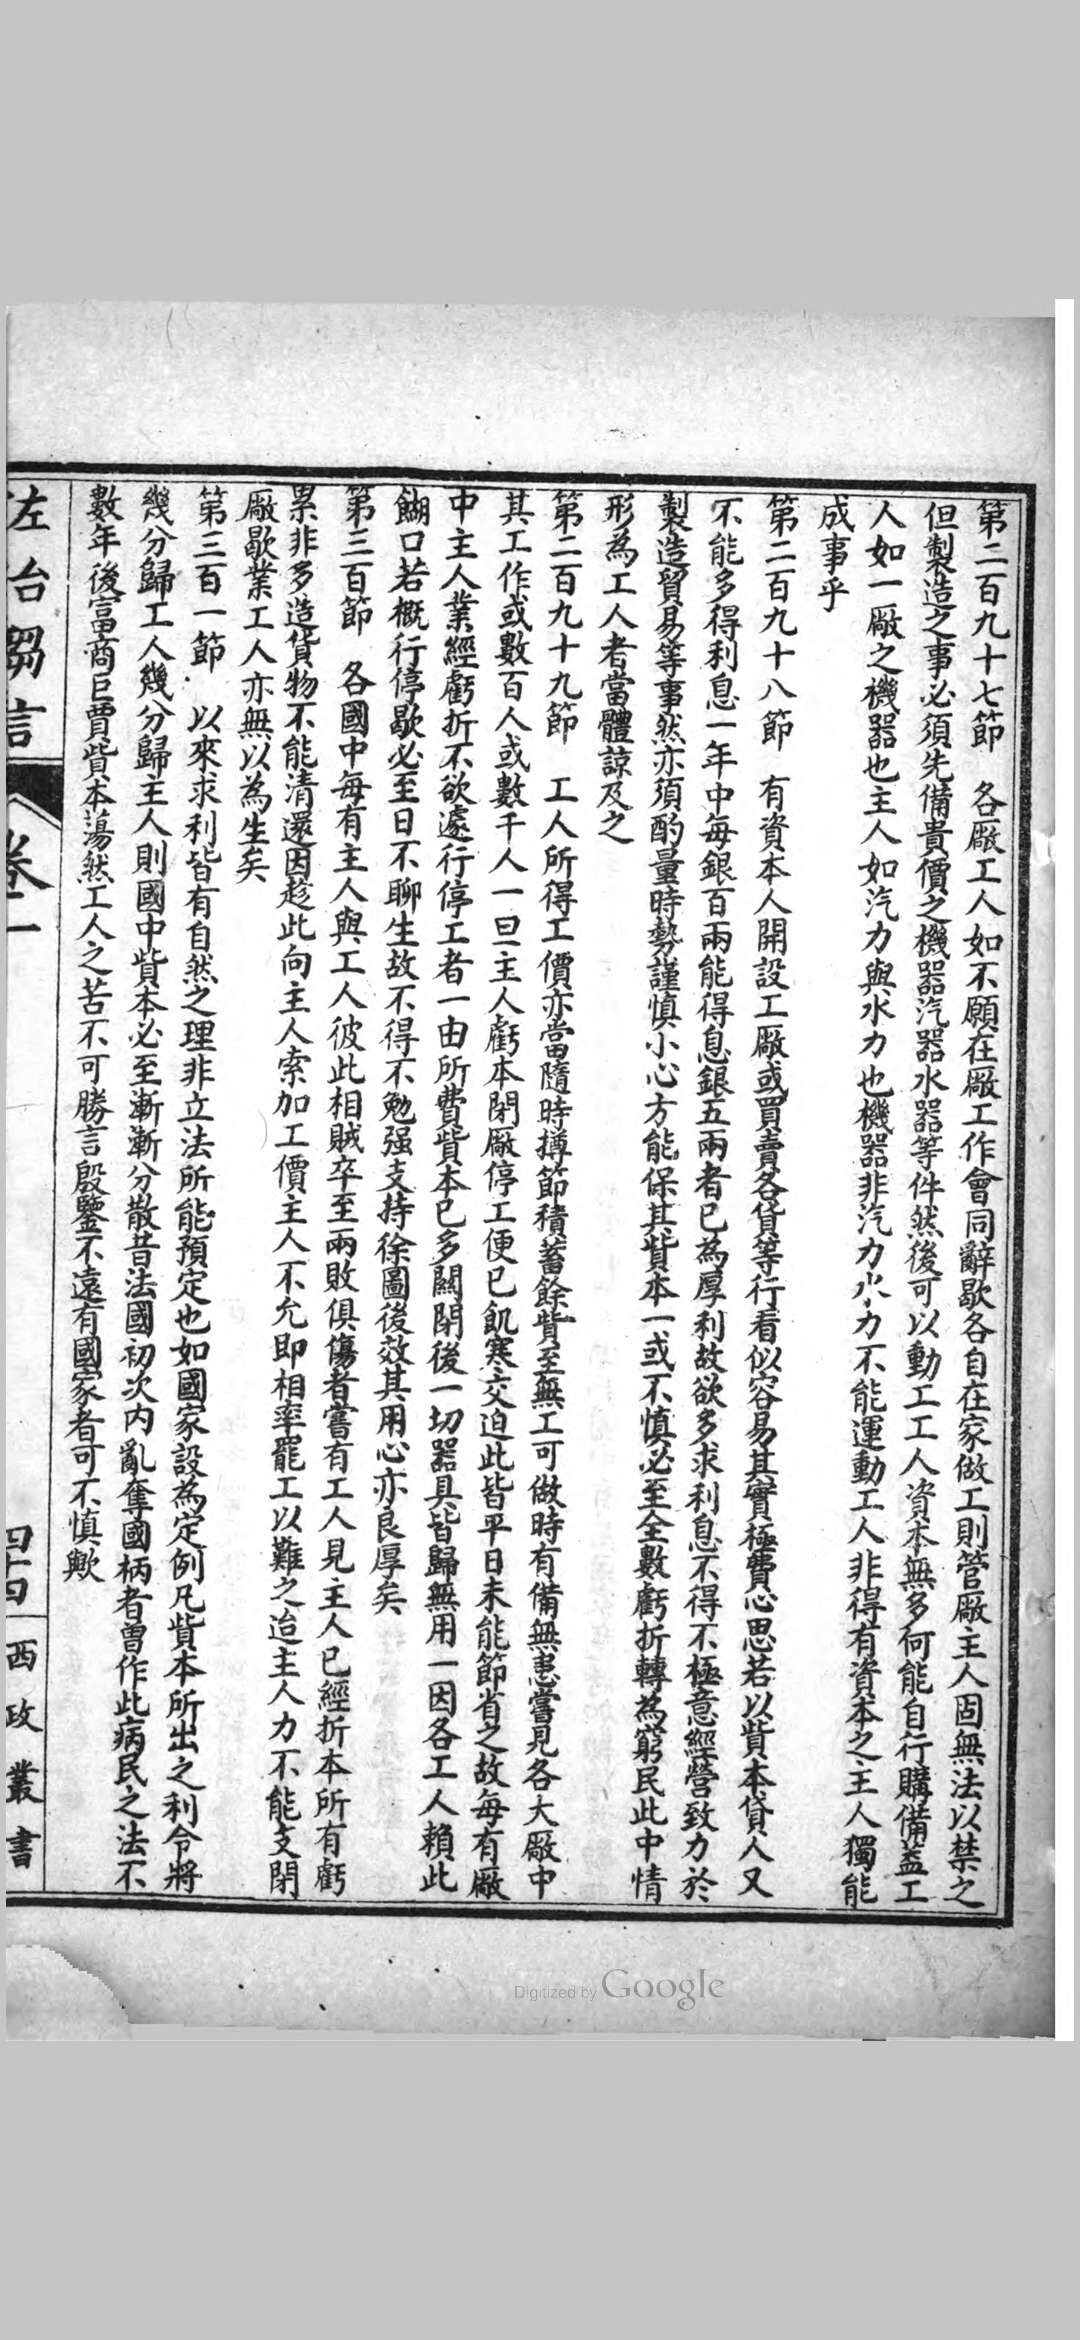 第二百九十七節　各廠工人如不願在廠工作會同辭歇各自在家做工則管廠主人固無法以禁之
但製造之事必須先備貴價之機器汽器水器等件然後可以動工工人資本無多何能自行購備蓋工
人如一廠之機器也主人如汽力與水力也機器非汽力水力不能運動工人非得有資本之主人獨能
成事乎
第二百九十八節　有資本人開設工廠或買賣各貨等行看似容易其實極費心思若以貲本貸人又
不能多得利息一年中每銀百兩能得息銀五兩者已為厚利故欲多求利息不得不極意經營致力於
製造貿易等事然亦須酌量時勢謹慎小心方能保其貲本一或不慎必至全數虧折轉為窮民此中情
形為工人者當體諒及之
第二百九十九節　工人所得工價亦當隨時撙節積蓄餘貲至無工可做時有備無患嘗見各大廠中
其工作或數百人或數千人一旦主人虧本閉廠停工便已飢寒交迫此皆平日未能節省之故每有廠
中主人業經虧折不欲遽行停工者一由所費貲本已多關閉後一切器具皆歸無用一因各工人賴此
餬口若概行停歇必至日不聊生故不得不勉强支持徐圖後效其用心亦良厚矣
第三百節　各國中每有主人與工人彼此相賊卒至兩敗俱傷者嘗有工人見主人已經折本所有虧
累非多造貨物不能清還因趁此向主人索加工價主人不允即相率罷工以難之迨主人力不能支閉
廠歇業工人亦無以為生矣
第三百一節　以來求利皆有自然之理非立法所能預定也如國家設為定例凡貲本所出之利令將
幾分歸工人幾分歸主人則國中貲本必至漸漸分散昔法國初次内亂奪國柄者曾作此病民之法不
數年後富商巨賈貲本蕩然工人之苦不可勝言殷鑒不遠有國家者可不慎歟
佐治芻言
卷二
四十四
西政叢書
Digitized by Google